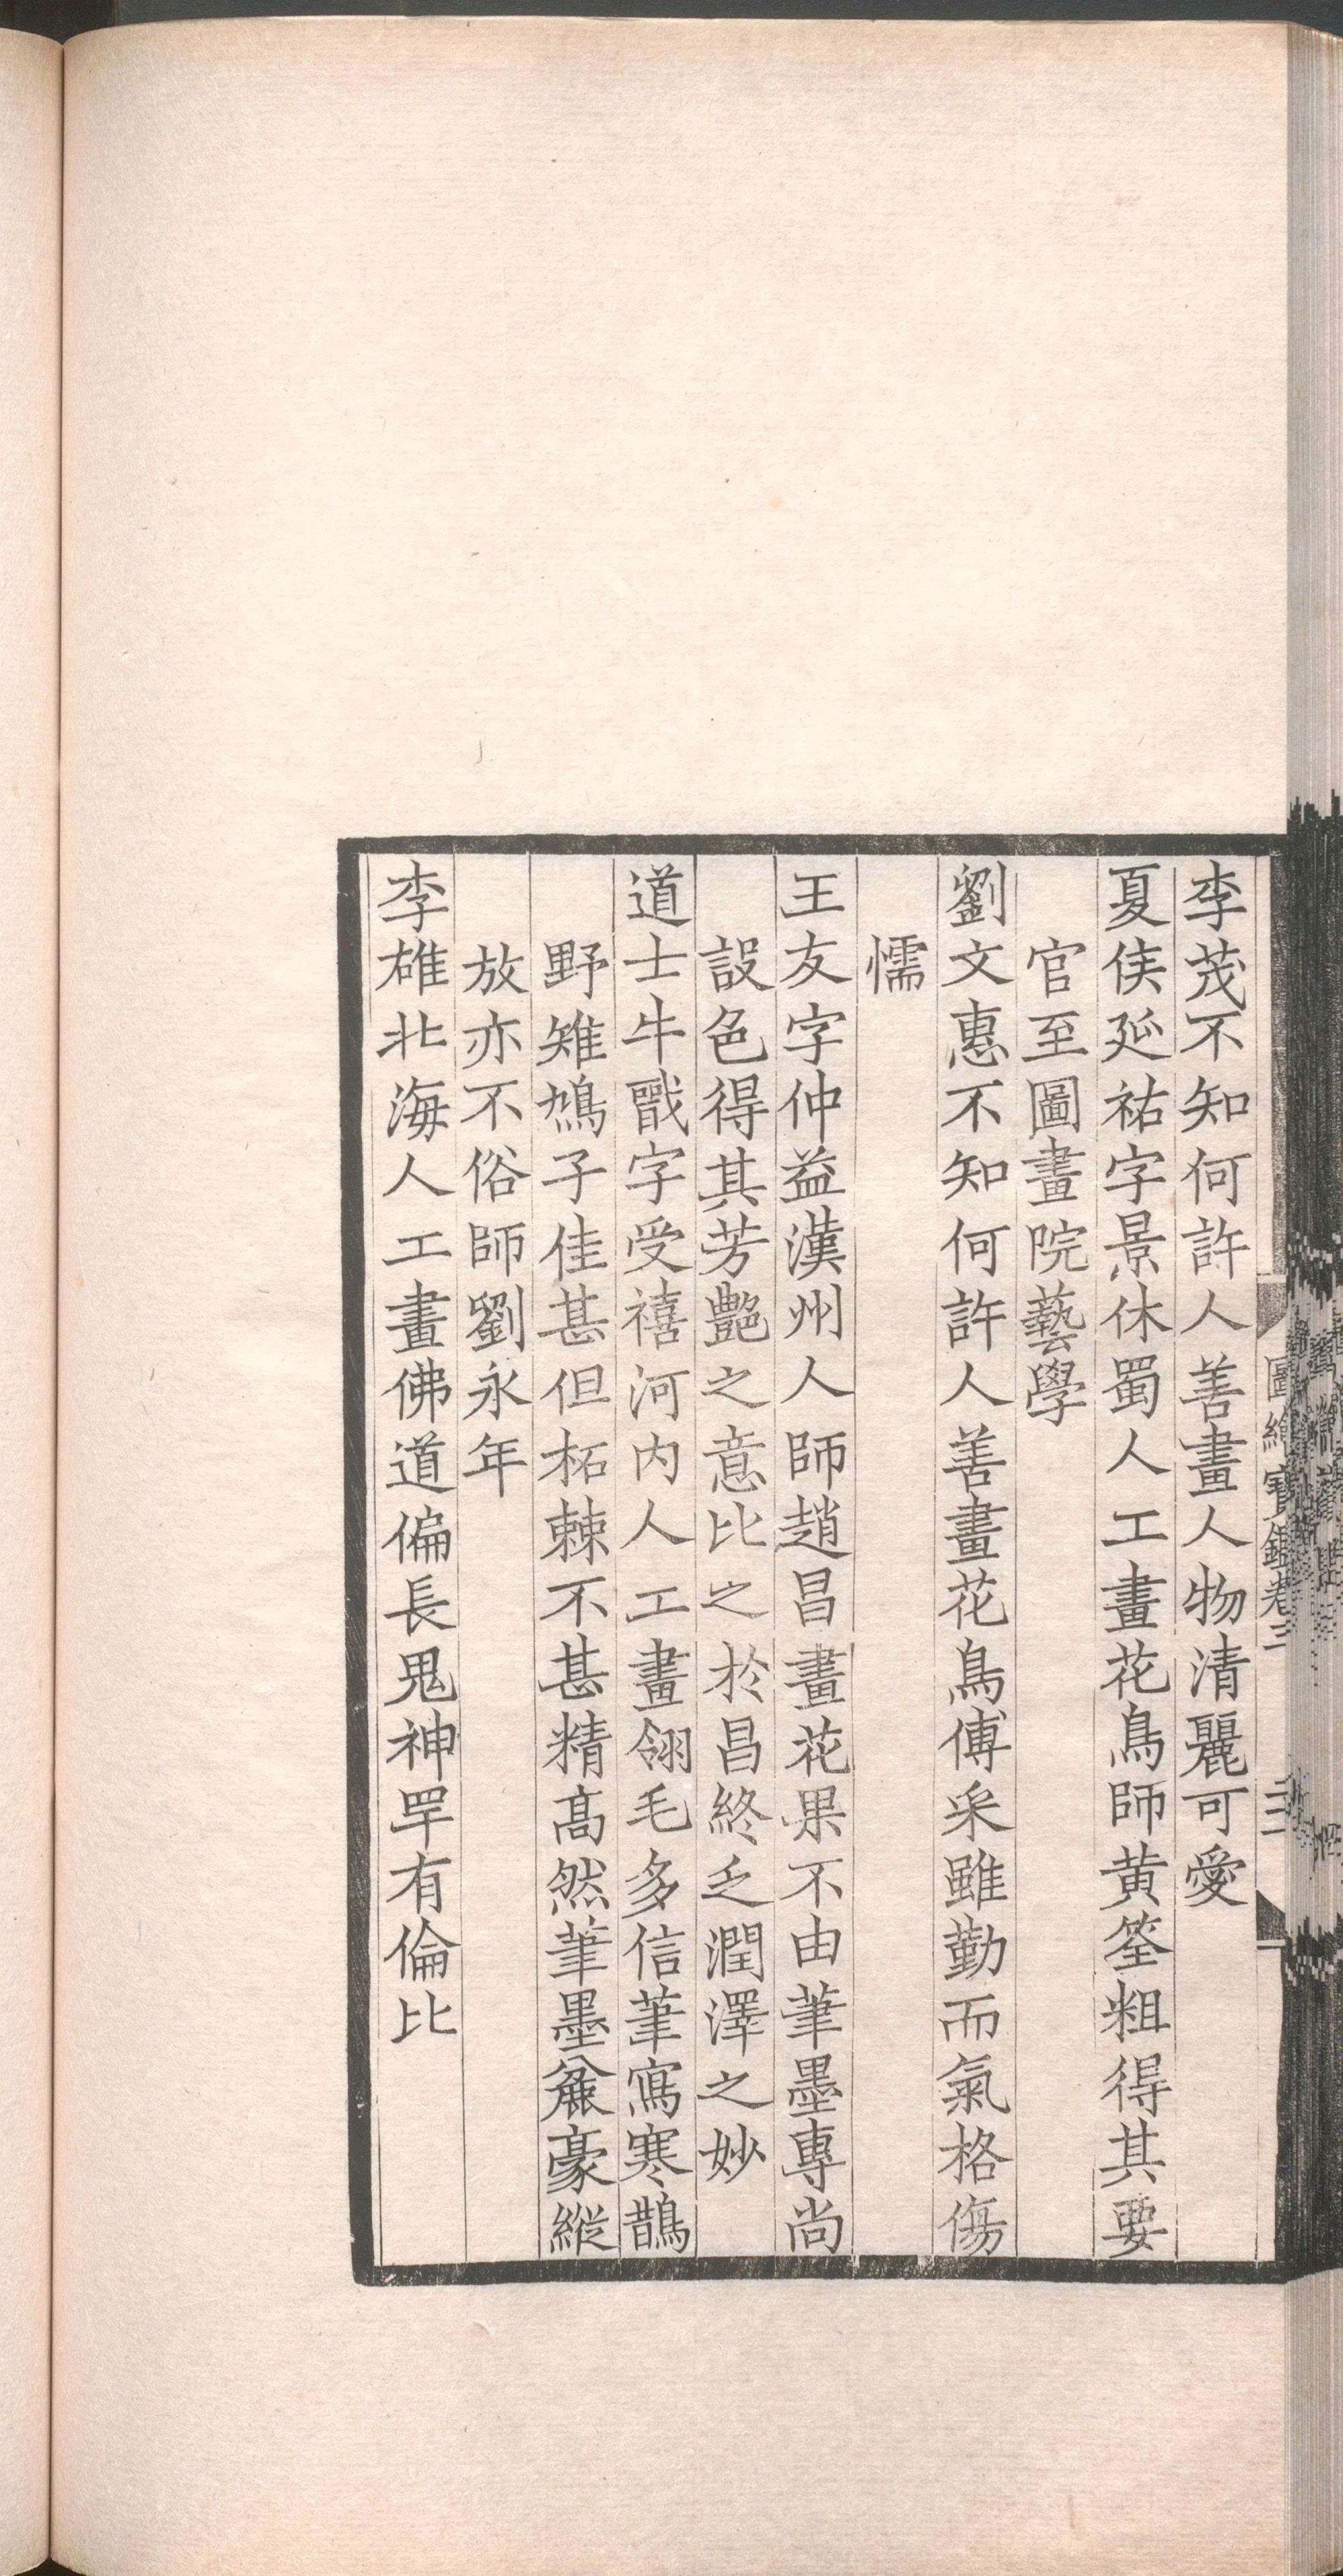 李茂不知何許人善畫人物清麗可愛
夏侯延祐字景休蜀人工畫花鳥師黃筌粗得其要
官至圖畫院藝學
劉文惠不知何許人善畫花鳥傅采雖勤而氣格傷
懦
王友字仲益漢州人師趙昌畫花果不由筆墨專尚
設色得其芳艷之意比之於昌終乏潤澤之妙
道士牛戩字受禧河內人工畫翎毛多信筆寫寒鵲
野雉鳩子佳甚但柘棘不甚精高然筆墨麄豪縱
放亦不俗師劉永年
李雄北海人工畫佛道偏長鬼神罕有倫比
圖繪寶鑑卷三